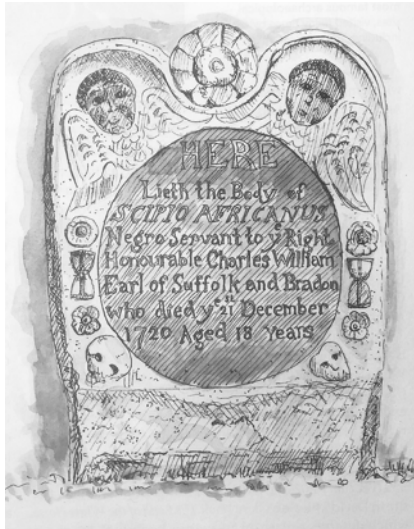 HERE
Lieth the Body of
SCIPIO AFRICANUS
Negro Servant to yᵉ Right
Honourable Charles William
Earl of Suffolk and Bradon
who died yᵉ 21ˢᵗ December
1720 Aged 18 Years